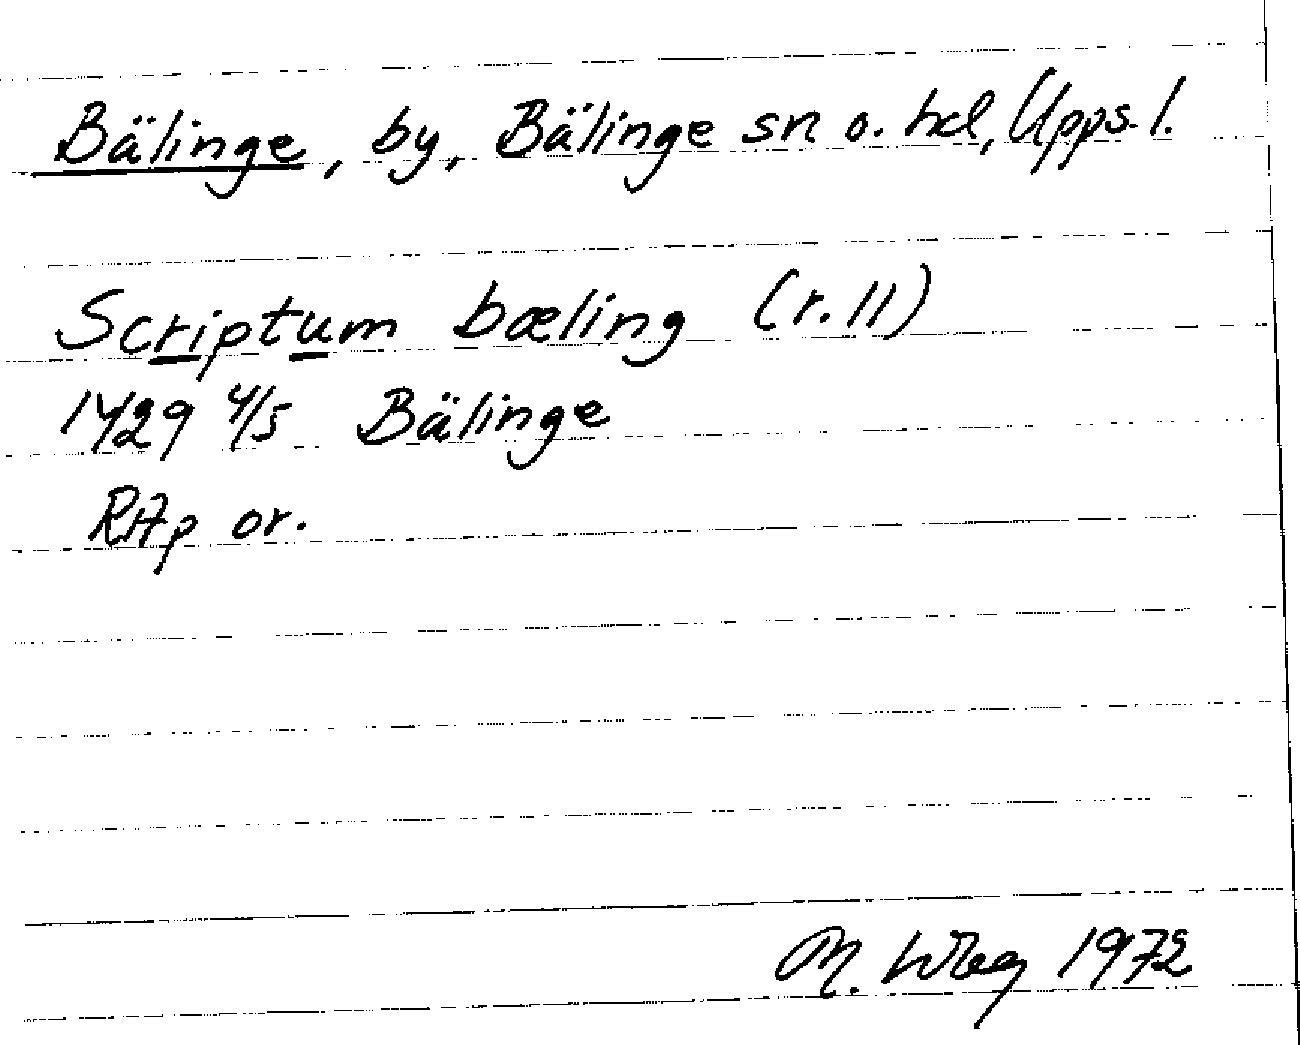 Bälinge, by, Bälinge sn o. hd, Upps. l.
Scriptum bæling (r. 11)
1429 4/5 Bälinge
RAp or.
M. 1972